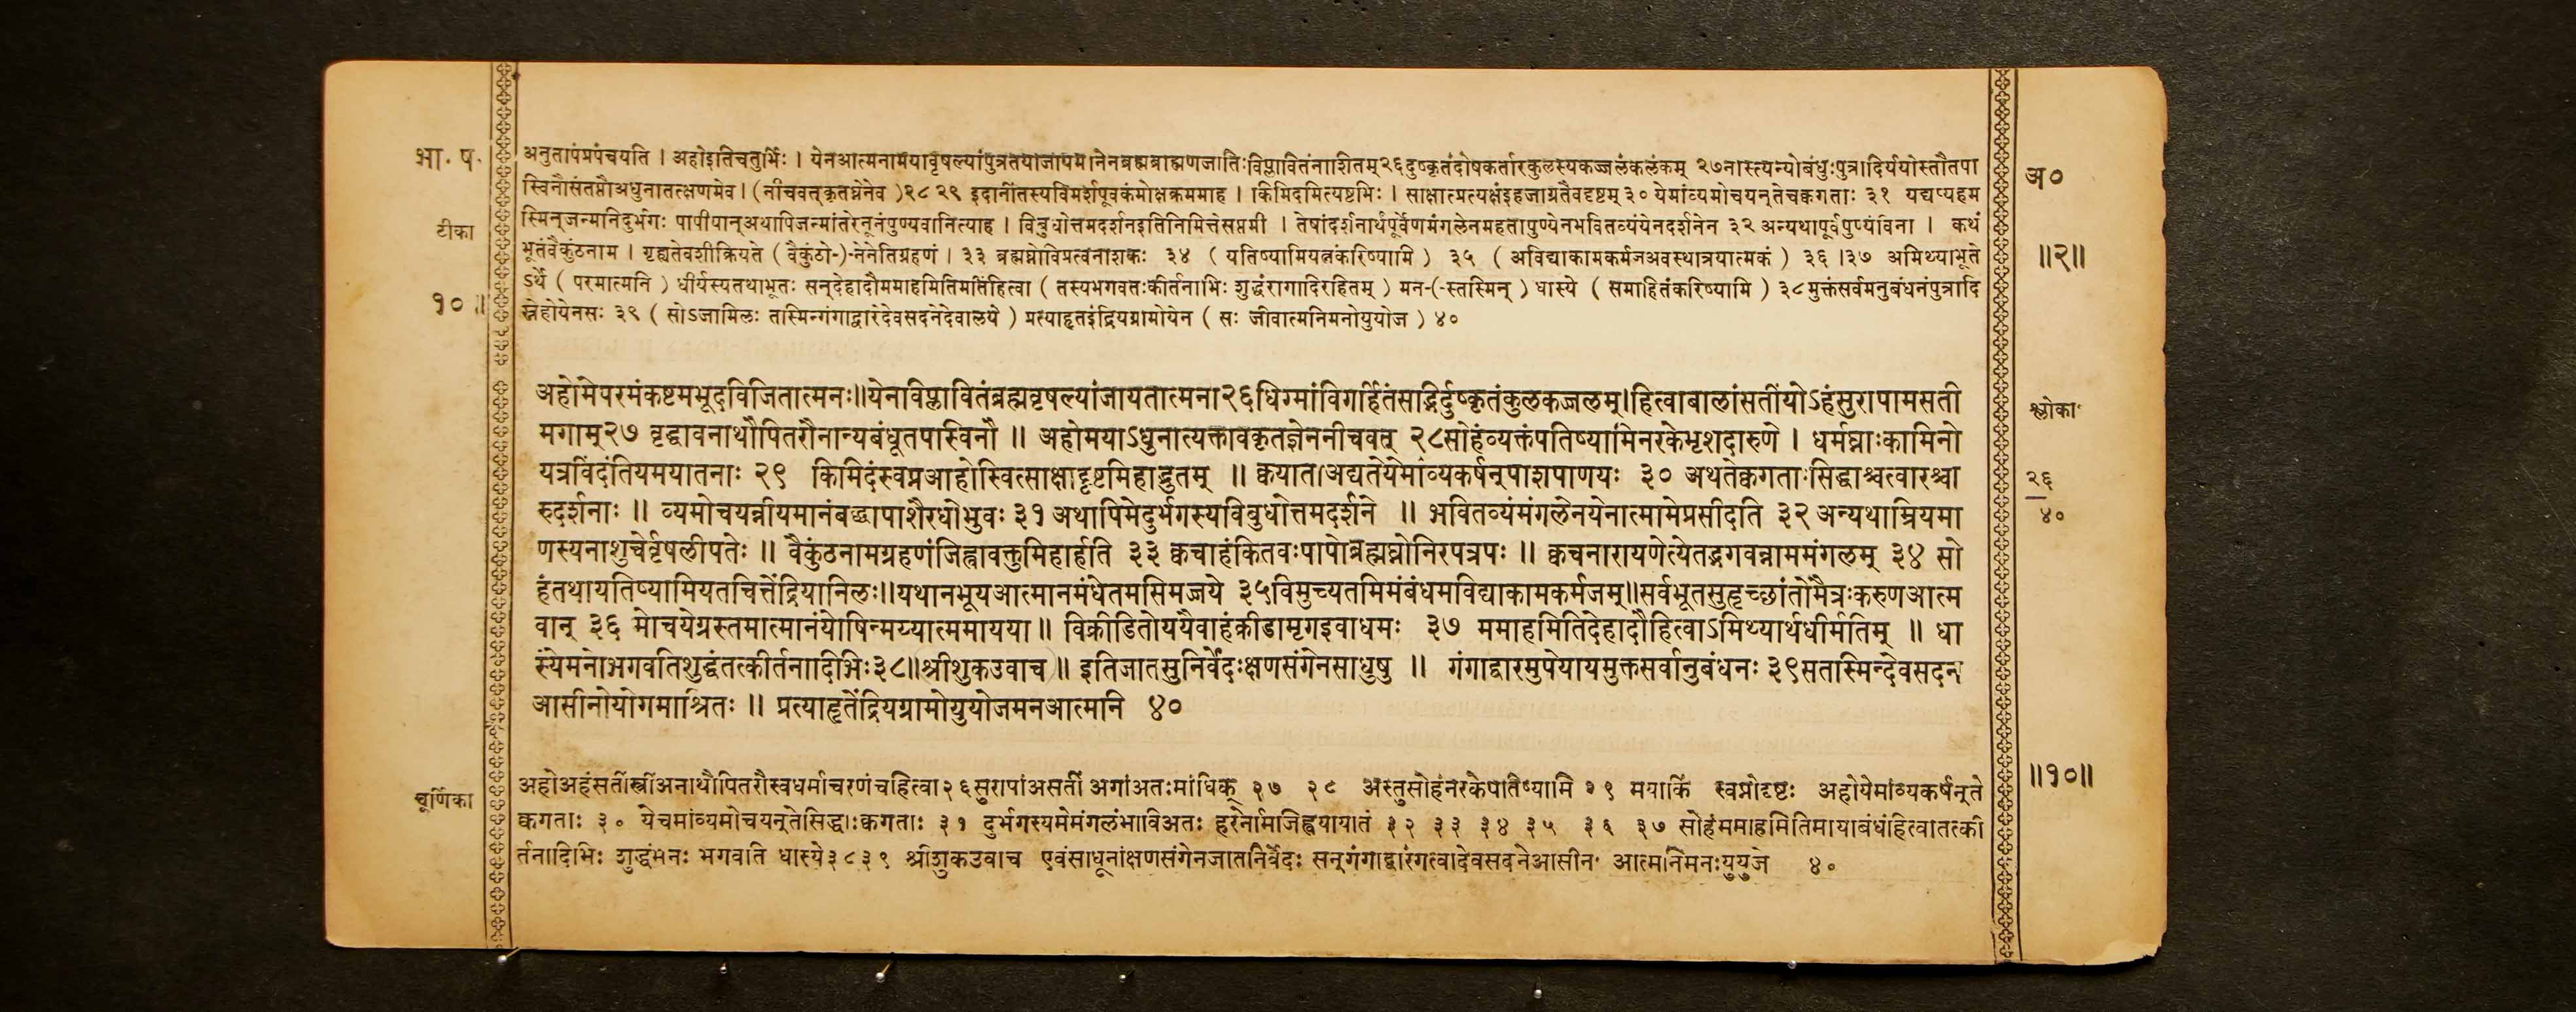 भा. ष.
टीका
१० ॥
अनुतापंप्रपंचयति । अहोइतिचतुर्भिः । येनआत्मनामयावृषल्यांपुत्रतयाजायमानेनब्रह्मब्राह्मणजातिःविप्लावितंनाशितम्२६दुष्कृतंदोषकर्तारंकुलस्यकज्जलंकलंकम् २७नास्त्यन्योबंधुःपुत्रादिर्ययोस्तौतपा
स्विनौसंतप्तौअधुनातत्क्षणमेव । (नीचवत्कृतघ्नेनेव )२८ २९ इदानींतस्यविमर्शपूर्वकंमोक्षक्रममाह । किमिदमित्यष्टभिः । साक्षात्प्रत्यक्षंइहजाग्रतैवदृष्टम् ३० येमांव्यमोचयन्तेचक्वगताः ३१ यद्यप्यहम
स्मिन्जन्मानिदुर्भगः पापीयान्अथापिजन्मांतरेनूनंपुण्यवानित्याह । विबुधोत्तमदर्शनइतिनिमित्तेसप्तमी । तेषांदर्शनार्थंपूर्वेणमंगलेनमहतापुण्येनभवितव्यंयेनदर्शनेन ३२ अन्यथापूर्वपुण्यंविना । कथं
भूतंवैकुंठनाम । गृह्यतेवशीक्रियते ( वैकुंठो-)-नेनेतिग्रहणं । ३३ ब्रह्मघ्नोविप्रत्वनाशकः ३४ ( यतिष्यामियत्नंकरिष्यामि ) ३५ ( अविद्याकामकर्मजअवस्थात्रयात्मकं ) ३६ ।३७ अमिथ्याभूते
ऽर्थे ( परमात्मनि ) धीर्यस्यतथाभूतः सन्देहादौममाहमितिमतिंहित्वा ( तस्यभगवतःकीर्तनाभिः शुद्धंरागादिरहितम् ) मन-(-स्तस्मिन् ) धास्ये ( समाहितंकरिष्यामि ) ३८मुक्तंसर्वमनुबंधनंपुत्रादि
स्नेहोयेनसः ३९ ( सोऽजामिलः तस्मिन्गंगाद्वारेदेवसदनेदेवालये ) प्रत्याहृतइंद्रियग्रामोयेन ( सः जीवात्मनिमनोयुयोज ) ४०
अ०
॥२॥
अहोमेपरमंकष्टमभूदविजितात्मनः॥येनाविप्लावितंब्रह्मवृषल्यांजायतात्मना२६धिग्मांविगर्हितंसद्भिर्दुष्कृतंकुलकज्जलम्।हित्वाबालांसतींयोऽहंसुरापामसती
मगाम्२७ वृद्धावनाथौपितरौनान्यबंधूतपास्विनौ ॥ अहोमयाऽधुनात्यक्तावकृतज्ञेननीचवत् २८सोहंव्यक्तंपतिष्यामिनरकेभृशदारुणे । धर्मघ्नाःकामिनो
यत्रविंदंतियमयातनाः २९ किमिदंस्वप्नआहोस्वित्साक्षाद्दृष्टमिहाद्भुतम् ॥ क्वयाता।अद्यतेयेमांव्यकर्षन्पाशपाणयः ३० अथतेक्वगताःसिद्धाश्चत्वारश्चा
रुदर्शनाः ॥ व्यमोचयन्नीयमानंबद्धापाशैरधोभुवः ३१ अथापिमेदुर्भगस्यविबुधोत्तमदर्शने ॥ भवितव्यंमंगलेनयेनात्मामेप्रसीदति ३२ अन्यथाम्रियमा
णस्यनाशुचेर्वृषलीपतेः ॥ वैकुंठनामग्रहणंजिह्वावक्तुमिहार्हति ३३ क्वचाहंकितवःपापोब्रह्मघ्नोनिरपत्रपः ॥ क्वचनारायणेत्येतद्भगवन्नाममंगलम् ३४ सो
हंतथायतिष्यामियतचित्तेंद्रियानिलः॥यथानभूयआत्मानमंधेतमसिमज्जये ३५विमुच्यतमिमंबंधमविद्याकामकर्मजम्॥सर्वभूतसुहृच्छांतोमैत्रःकरुणआत्म
वान् ३६ मोचयेग्रस्तमात्मानंयोषिन्मय्यात्ममायया ॥ विक्रीडितोययैवाहंक्रीडामृगइवाधमः ३७ ममाहमितिदेहादौहित्वाऽमिथ्यार्थधीर्मतिम् ॥ धा
स्येमनोभगवतिशुद्धंतत्कीर्तनादिभिः३८॥श्रीशुकउवाच ॥ इतिजातसुनिर्वेदःक्षणसंगेनसाधुषु ॥ गंगाद्वारमुपेयायमुक्तसर्वानुबंधनः ३९सतास्मिन्देवसदन
आसीनोयोगमाश्रितः ॥ प्रत्याहृतेंद्रियग्रामोयुयोजमनआत्मनि ४०
श्लोका
२६
४०
चूर्णिका
अहोअहंसतींस्त्रींअनाथौपितरौस्वधर्माचरणंचहित्वा२६सुरापांअसतीं अगांअतःमांधिक् २७ २८ अस्तुसोहंनरकेपातिष्यामि २९ मयाकिं स्वप्नोदृष्टः अहोयेमांव्यकर्षन्ते
क्वगताः ३० येचमांव्यमोचयन्तेसिद्धाःक्वगताः ३१ दुर्भगस्यमेमंगलंभाविअतः हरेर्नामजिह्वयायातं ३२ ३३ ३४ ३५ ३६ ३७ सोहंममाहमितिमायाबंधंहित्वातत्की
र्तनादिभिः शुद्धंमनः भगवति धास्ये३८३९ श्रीशुकउवाच एवंसाधूनांक्षणसंगेनजातनिर्वेदः सन्गंगाद्वारंगत्वादेवसदनेआसीनः आत्मनिमनःयुयुजे ४०
॥१०॥